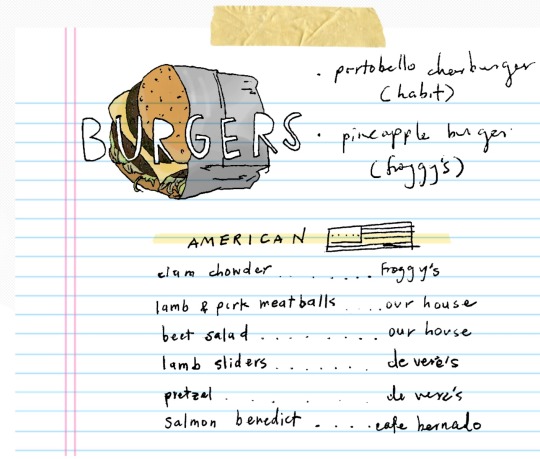 BURGERS
• portobello charburger
(habit)
• pineapple burger
(froggy's)
AMERICAN
clam chowder . . . . . . . froggy's
lamb & pork meatballs . . . . our house
beet salad . . . . . . . . our house
lamb sliders . . . . . . de vere's
pretzel . . . . . . de vere's
salmon benedict . . . . cafe bernado